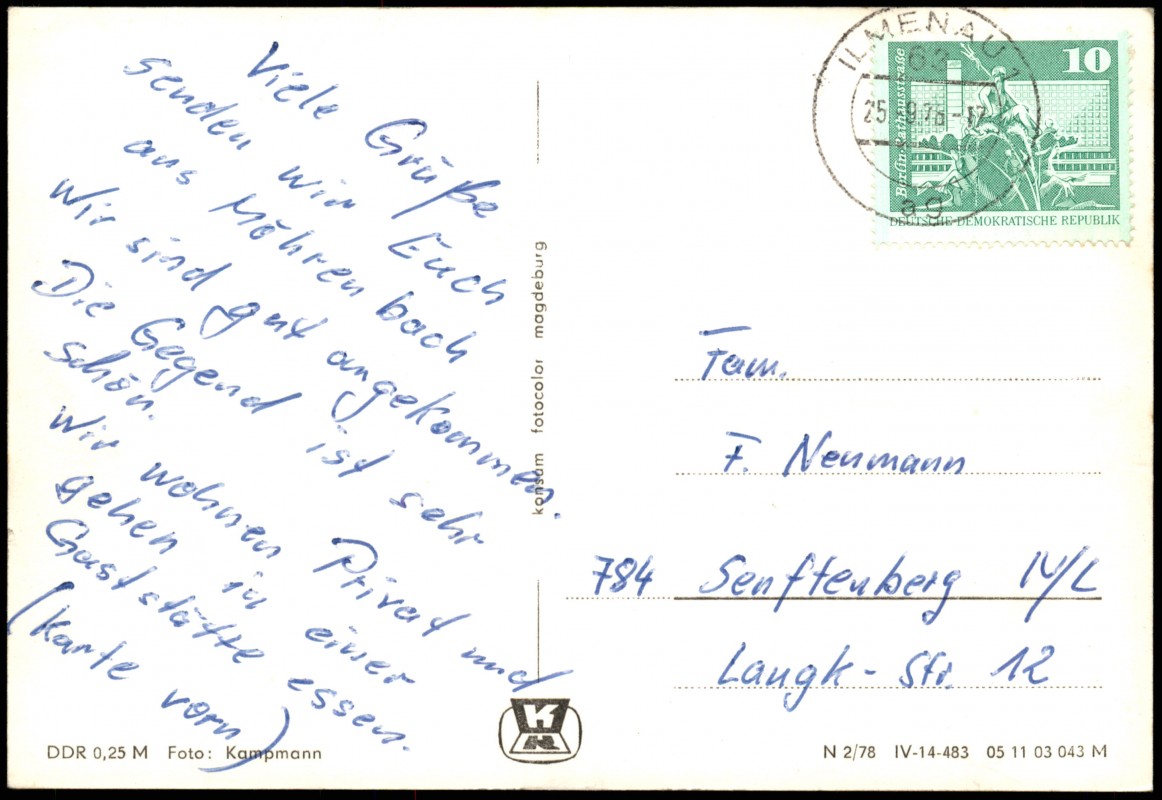 Viele Grüße
senden wir Euch
aus Möhrenbach
Wir sind gut angekommen.
Die Gegend ist sehr
schön.
Wir wohnen Privat und
gehen in einer
Gaststätte essen.
(Karte vorn)
DDR 0,25 M Foto: Kampmann
konsum fotocolor magdeburg
ILMENAU 1
63
ag
10
Berlin-Rathausstraße
DEUTSCHE DEMOKRATISCHE REPUBLIK
Fam.
F. Neumann
784 Senftenberg N/L
Langk-Str. 12
N 2/78 IV-14-483 05 11 03 043 M